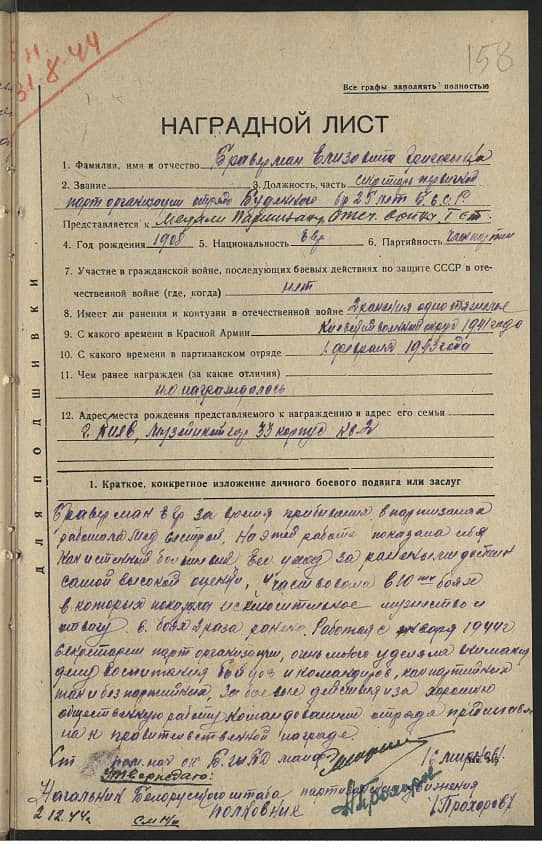 31-8-44
158
Все графы заполнять полностью
НАГРАДНОЙ ЛИСТ
1. Фамилия, имя и отчество Браверман Елизовита Григорьевна
2. Звание 3. Должность, часть секретарь первичной
парт организации отряда Буденного бр 25 лет Б.С.С.Р.
Представляется к Медали Партизану Отеч. войны I ст.
4. Год рождения 1908 5. Национальность Евр 6. Партийность Член партии
7. Участие в гражданской войне, последующих боевых действиях по защите СССР в оте-
чественной войне (где, когда) нет
8. Имеет ли ранения и контузии в отечественной войне 2 ранения одно тяжелое
9. С какого времени в Красной Армии Киевский военный округ 1941 года
10. С какого времени в партизанском отряде 1 февраля 1943 года
11. Чем ранее награжден (за какие отличия)
не награждалась
12. Адрес места рождения представляемого к награждению и адрес его семьи
г. Киев, 33 корпус кв. 2
1. Краткое, конкретное изложение личного боевого подвига или заслуг
Браверман Е Гр за время пребывания в партизанах
работала мед сестрой. На этой работе показала себя
как истенный большевик Ее уход за ранеными достоин
самой высокой оценки, Участвовала в 10 боях
в которых показала исключительное мужество и
отвагу в боях 2 раза ранена. Работая с января 1944 г
секретарем парт организации, очень много уделяла внимания
делу воспитания бойцов и командиров, как партийных
так и без партийных За боевые действия и за хорошую
общественную работу командование отряда представляет
на к правительственной награде.
Ст
Утверждаю:
Начальник Белорусского штаба партизанского движения
полковник /Прохоров/
2 12.44г.
ДЛЯ ПОДШИВКИ